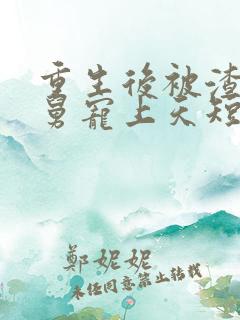 重生後被渣
舅寵上天短
鄭妮妮
未經同意禁止轉載